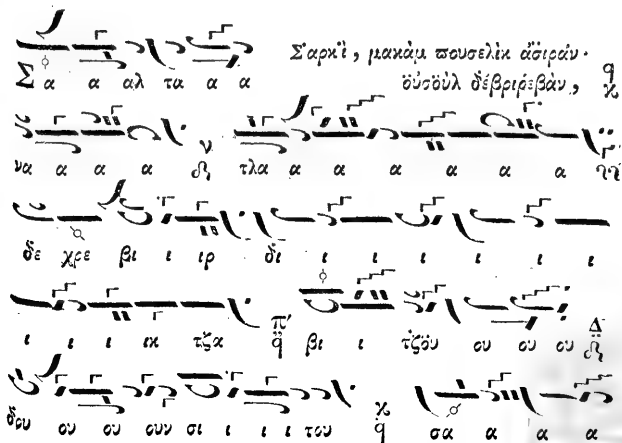 Σαρκὶ, μακὰμ πουσελὶκ ἀσιράν·
οὐσοὺλ δέβριρεβὰν,
Σα α αλ τα α α
να α α α τλα α α α α α α α
δε χρε βι ι ιρ δι ι ι ι ι ι ι
ι ι ι ικ τζα βι ι τζοὺ ου ου ου
δου ου ου ουν σι ι ι ι του σα α α α